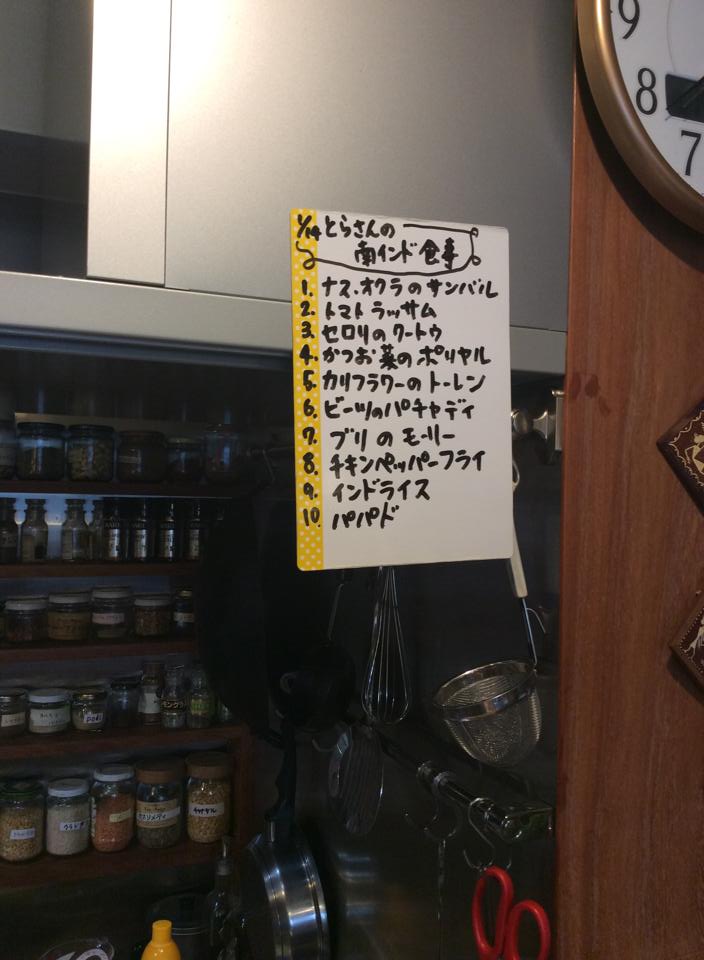 9
8
7
1/14 とらさんの
南インド食事
1. ナス、オクラのサンバル
2. トマトラッサム
3. セロリのクートゥ
4. かつお菜のポリヤル
5. カリフラワーのトーレン
6. ビーツのパチャディ
7. ブリのモーリー
8. チキンペッパーフライ
9. インドライス
10. パパド